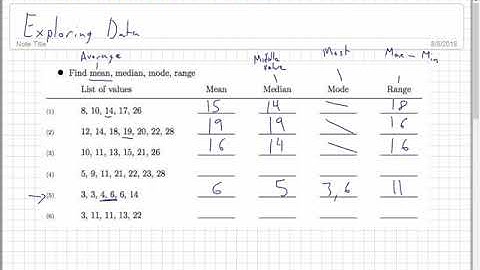 Exploring Data
Note Title
8/8/2018
Average
Middle value
Most
Max – Min
• Find mean, median, mode, range
List of values Mean Median Mode Range
(1) 8, 10, 14, 17, 26 15 14 \ 18
(2) 12, 14, 18, 19, 20, 22, 28 19 19 \ 16
(3) 10, 11, 13, 15, 21, 26 16 14 \ 16
(4) 5, 9, 11, 21, 22, 23, 28
(5) 3, 3, 4, 6, 6, 14 6 5 3, 6 11
(6) 3, 11, 11, 13, 22